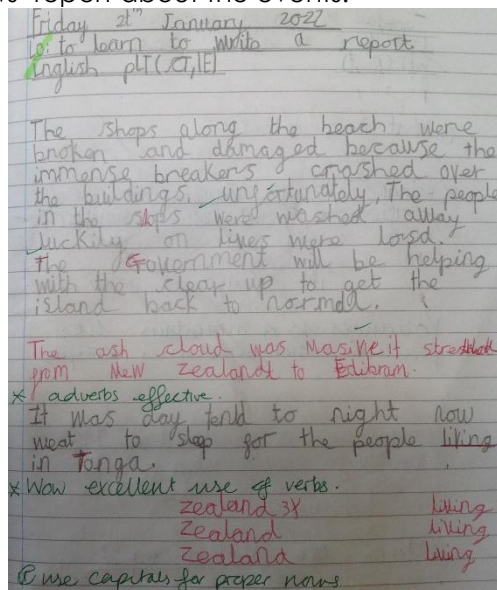 report about the events.
Friday 21th January 2022
Lo: to learn to write a report
English PLT(SCT,IE)
The shops along the beach were
broken and damaged because the
immense breakers crashed over
the buildings. unfortunately, The people
in the shps were washed away
luckily on lives were losd.
The Government will be helping
with the clear up to get the
island back to normal.
The ash cloud was Masive it
from New zealandt to Edibram.
* adverbs effective.
It was day tend to night now
meat to sleep for the people living
in Tonga.
* Wow excellent use of verbs.
zealand 3x living
zealand living
zealand living
use capitals for proper nouns